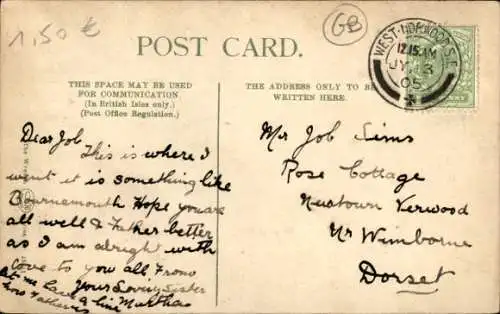 1,50 €
GB
POST CARD.
WEST-NORWOOD S.E.
12.15 AM
JY 3
05
THIS SPACE MAY BE USED
FOR COMMUNICATION.
(In British Isles only.)
(Post Office Regulation.)
THE ADDRESS ONLY TO BE
WRITTEN HERE.
Dear Job
This is where I
went it is something like
Bournemouth Hope you are
all well & Father better
as I am alright with
Love to you all From
your Loving Sister
Martha
a line
Mr Job Sims
Rose Cottage
Newtown Verwood
Nr Wimborne
Dorset